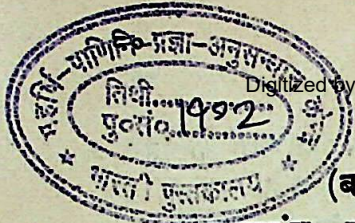 महर्षि-पाणिनि-प्रज्ञा-अनुसन्धान
तिथी..................
पु०सं०.1992
भारती पुस्तकालय
Digitized by
(ब